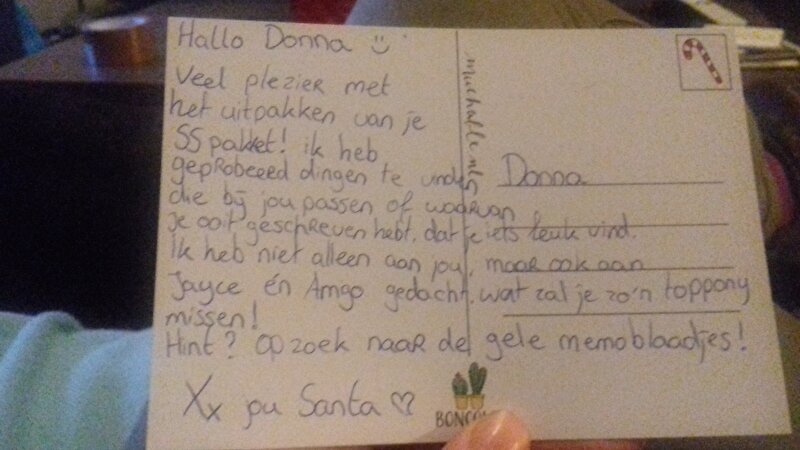 Hallo Donna
Veel plezier met
het uitpakken van je
SS pakket! ik heb
geprobeerd dingen te vinden
die bij jou passen of waarvan
je ooit geschreven hebt, dat je iets leuk vind.
Ik heb niet alleen aan jou, maar ook aan
Jayce én Amgo gedacht, wat zal je zo'n toppony
missen!
Hint? op zoek naar de gele memoblaadjes!
Xx jou Santa
Donna